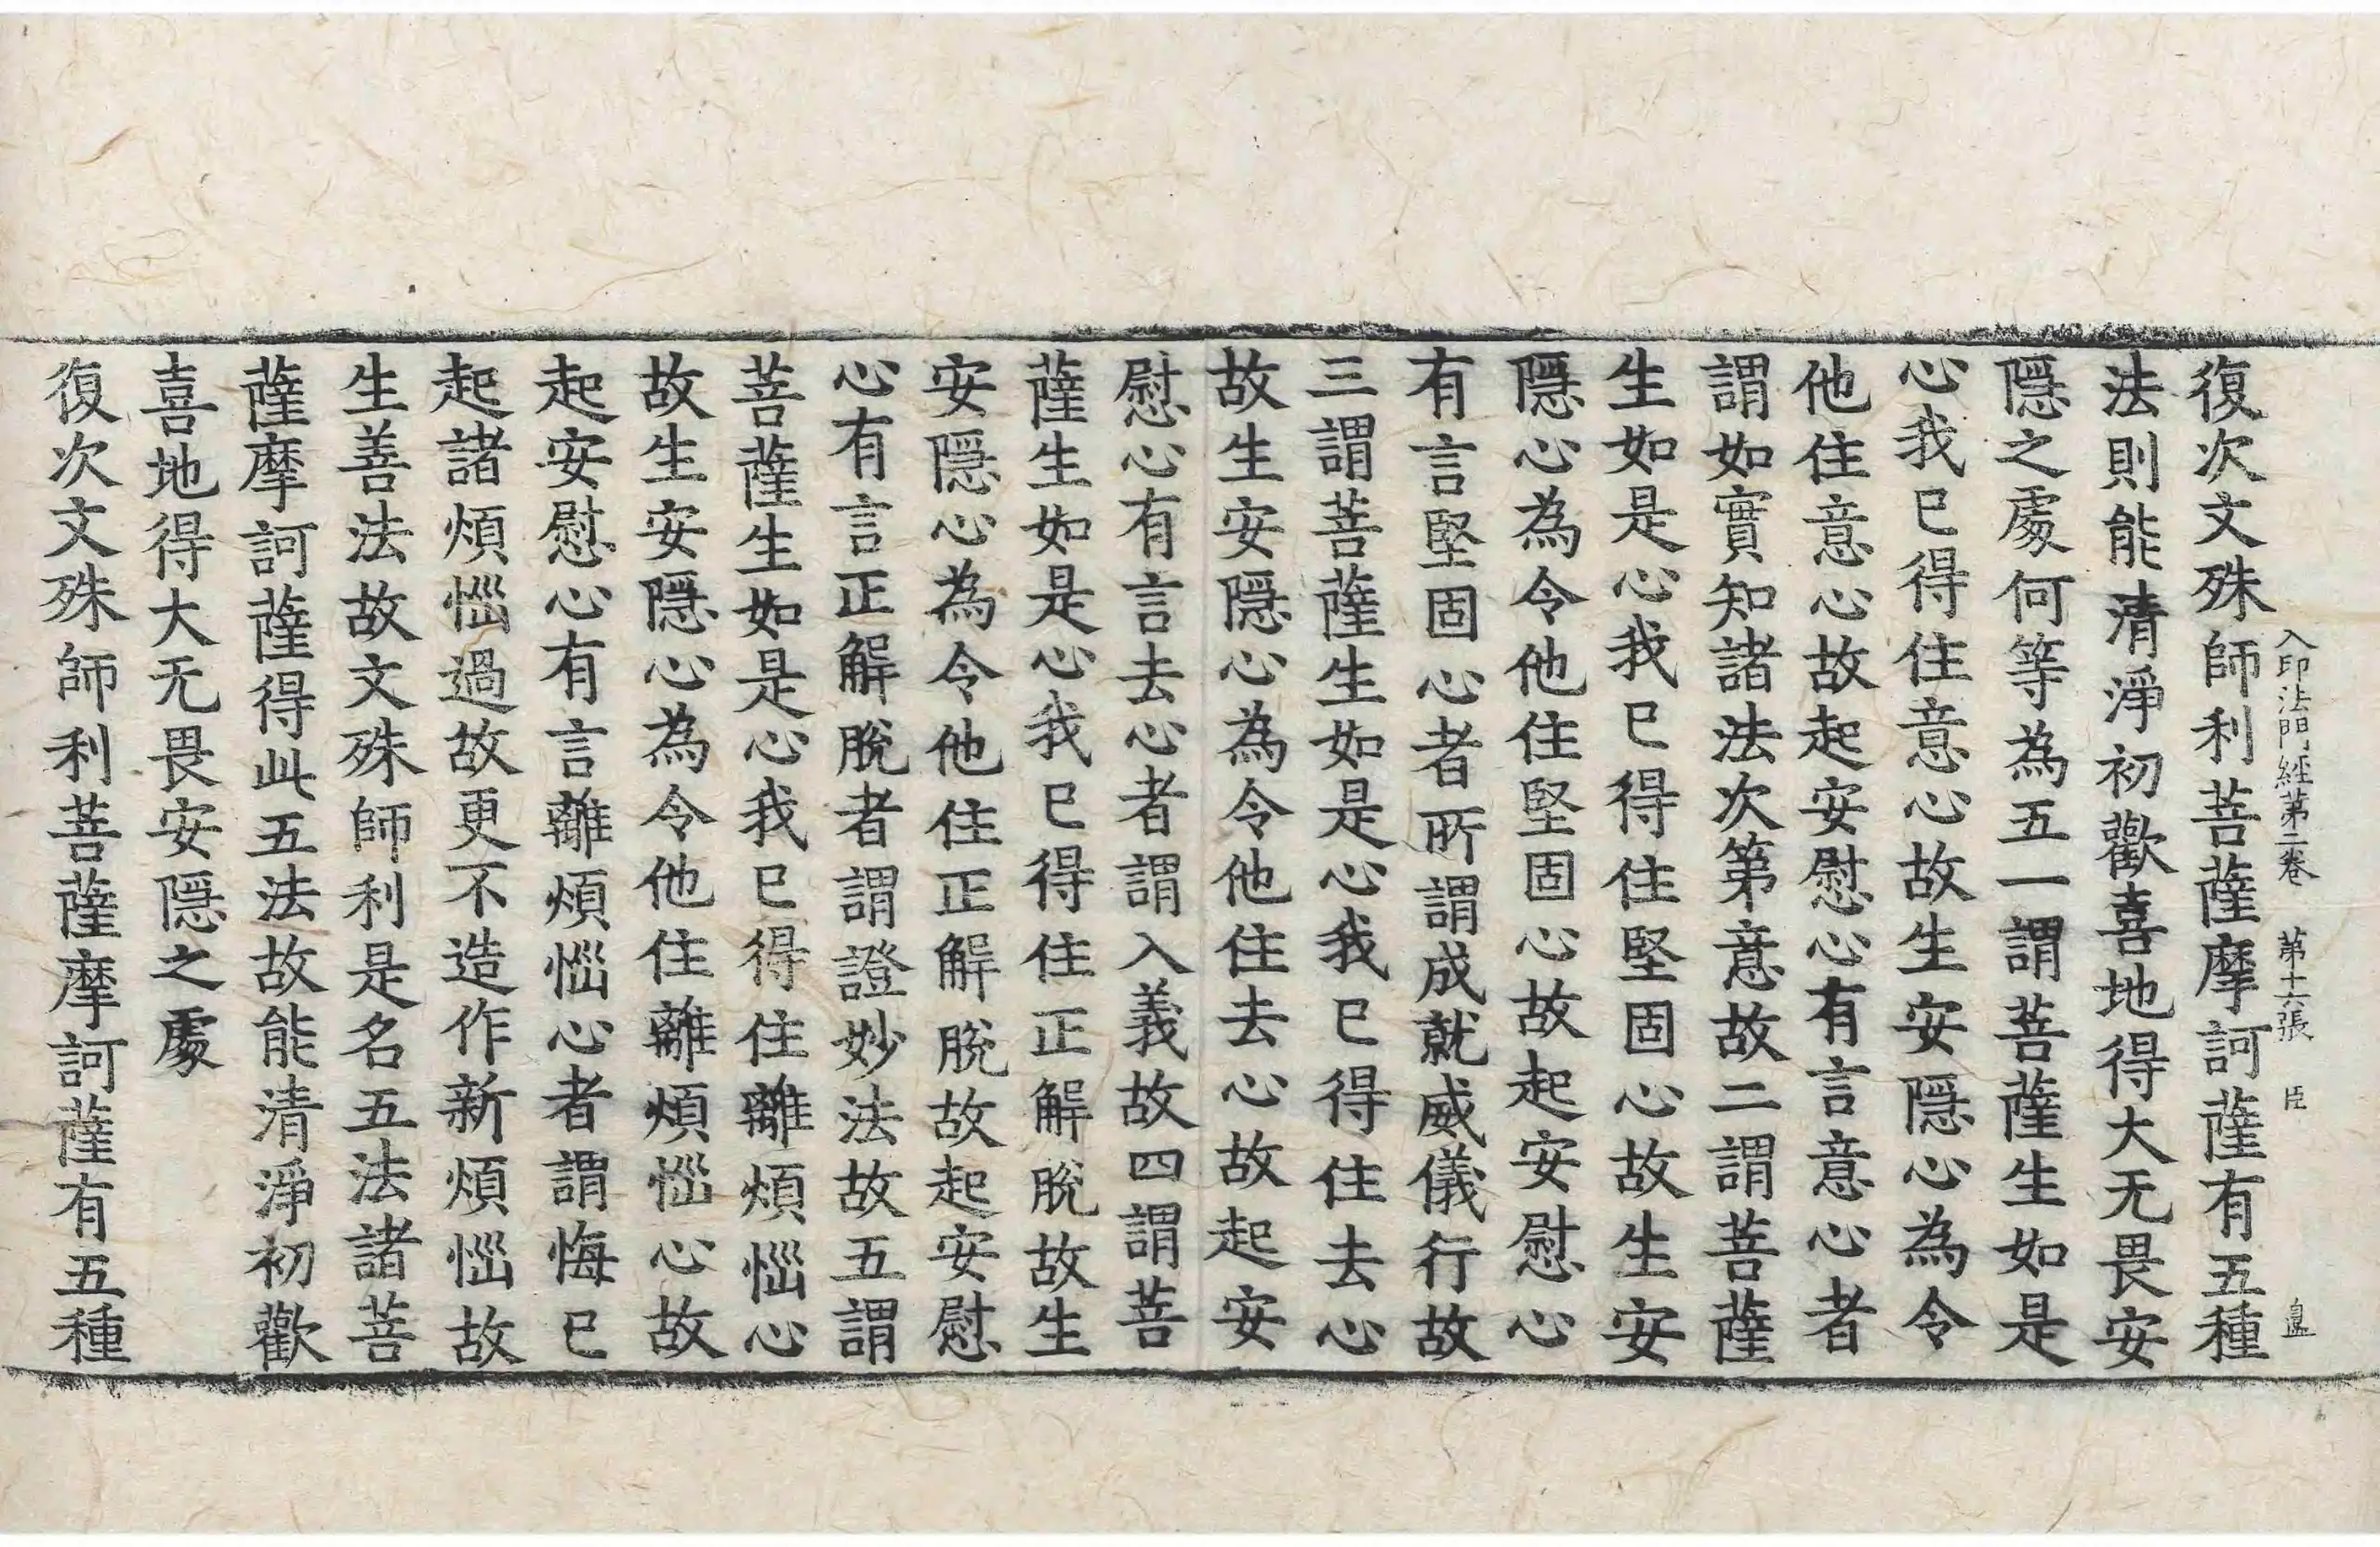 入印法門經第二卷　第十六張　臣　𥁞
復次文殊師利菩薩摩訶薩有五種
法則能清淨初歡喜地得大无畏安
隱之處何等為五一謂菩薩生如是
心我已得住意心故生安隱心為令
他住意心故起安慰心有言意心者
謂如實知諸法次第意故二謂菩薩
生如是心我已得住堅固心故生安
隱心為令他住堅固心故起安慰心
有言堅固心者所謂成就威儀行故
三謂菩薩生如是心我已得住去心
故生安隱心為令他住去心故起安
慰心有言去心者謂入義故四謂菩
薩生如是心我已得住正解脫故生
安隱心為令他住正解脫故起安慰
心有言正解脫者謂證妙法故五謂
菩薩生如是心我已得住離煩惱心
故生安隱心為令他住離煩惱心故
起安慰心有言離煩惱心者謂悔已
起諸煩惱過故更不造作新煩惱故
生善法故文殊師利是名五法諸菩
薩摩訶薩得此五法故能清淨初歡
喜地得大无畏安隱之處
復次文殊師利菩薩摩訶薩有五種